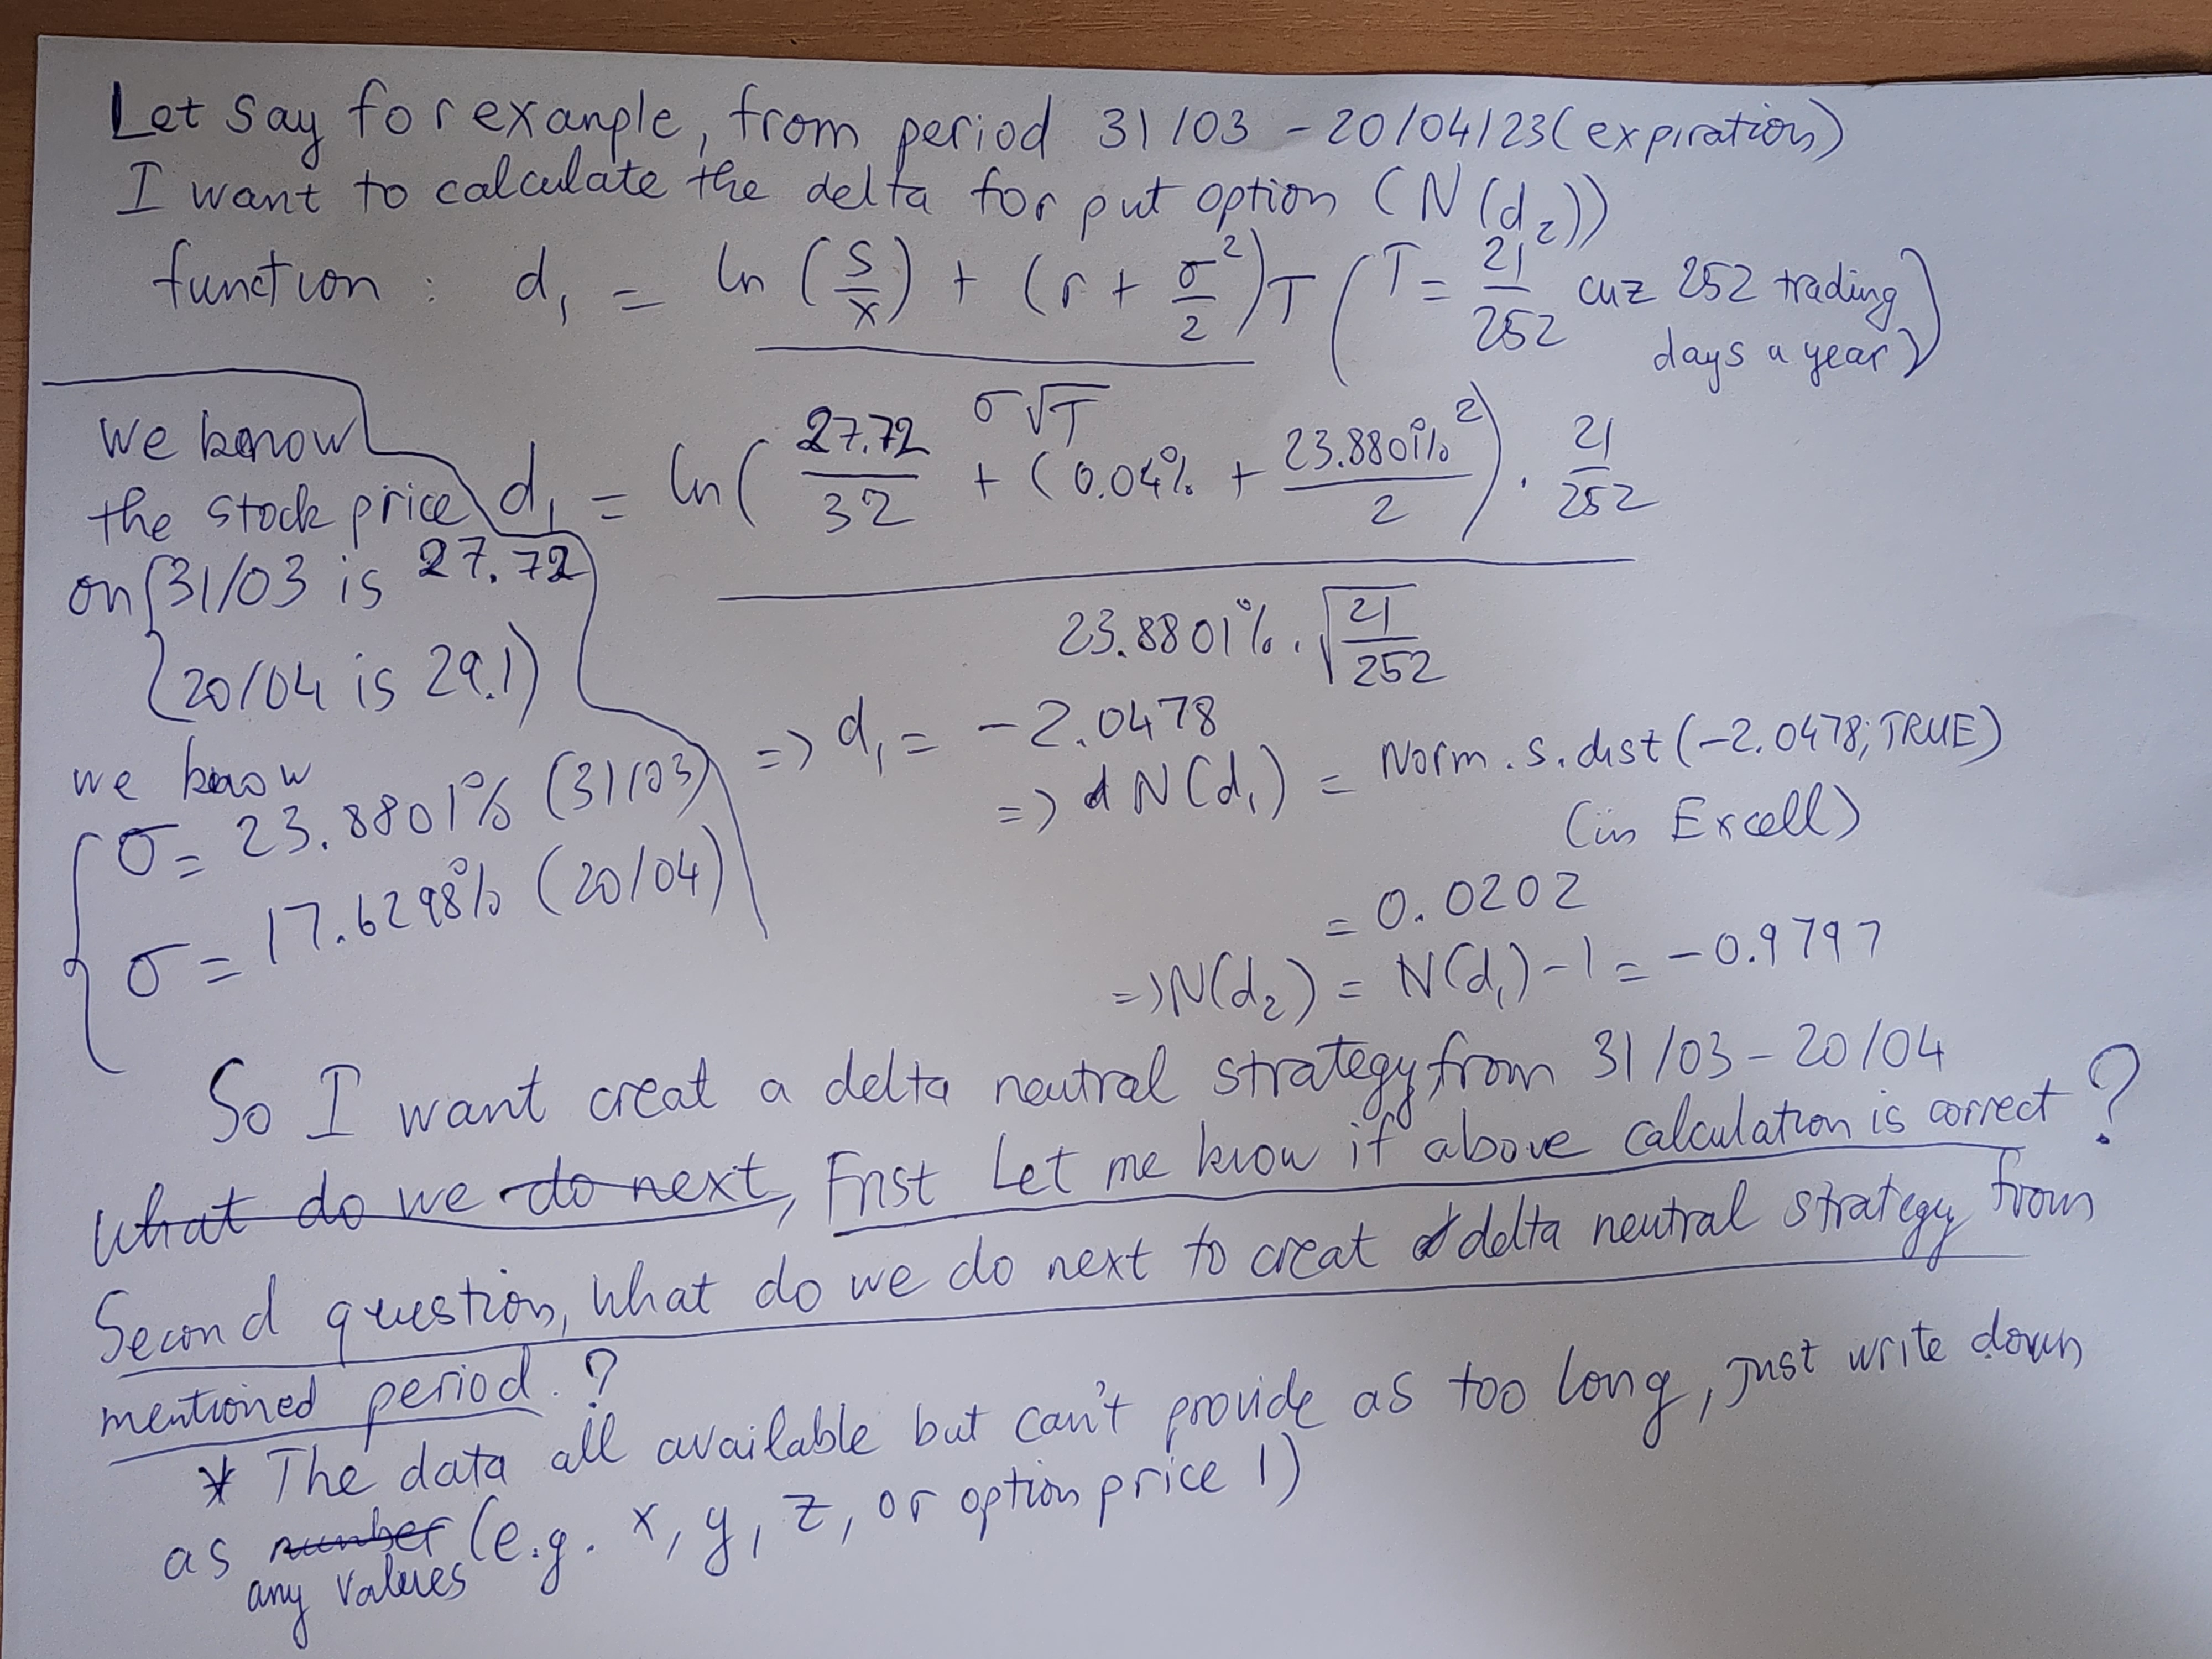 Let say for example, from period 31/03 - 20/04/23 (expiration)
I want to calculate the delta for put option (N(d₂))
function : d₁ = ln (S/X) + (r + σ²/2)T / σ√T (T = 21/252 cuz 252 trading days a year)
We know
the stock price
on 31/03 is 27.72
20/04 is 29.1)
we know
σ = 23.8801% (31/03)
σ = 17.6298% (20/04)
d₁ = ln( 27.72/32 + (0.04% + 23.8801%²/2) . 21/252 / 23.8801% . √21/252
=> d₁ = -2.0478
=> N(d₁) = Norm.s.dist(-2.0478; TRUE)
(in Excell)
= 0.0202
=> N(d₂) = N(d₁) - 1 = -0.9797
So I want creat a delta neutral strategy from 31/03 - 20/04
What do we do next, First Let me know if above calculation is correct?
Second question, What do we do next to creat delta neutral strategy from
mentioned period.?
* The data all available but can't provide as too long, just write down
as number any values (e.g. x, y, z, or option price 1)